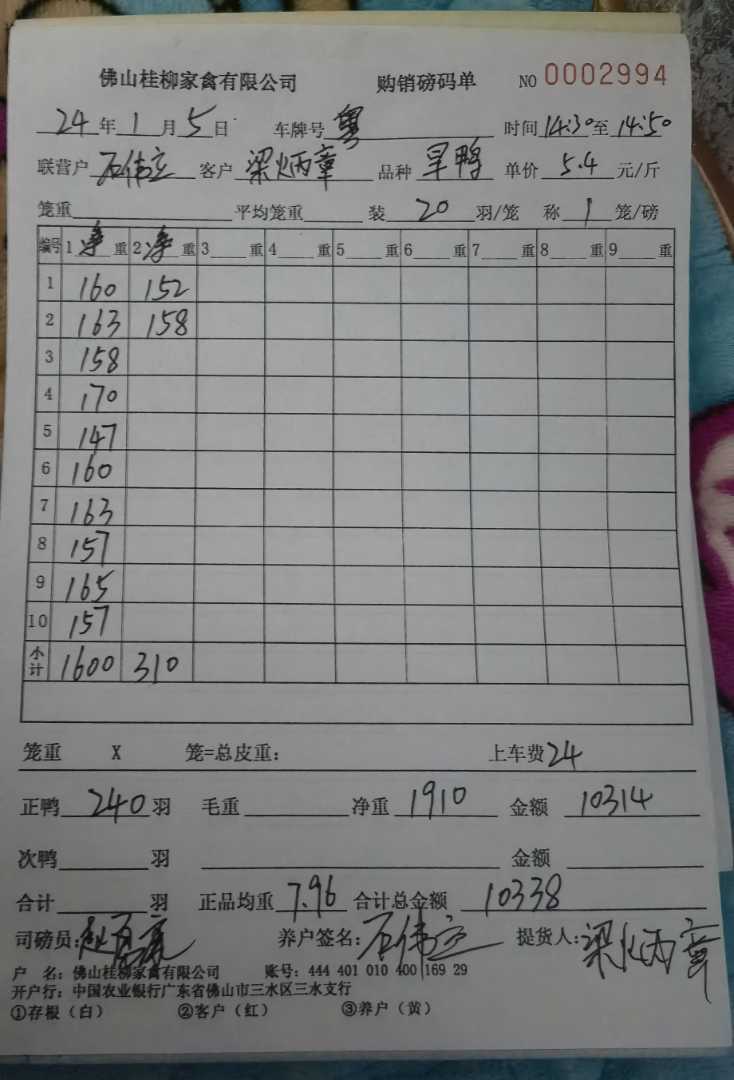 佛山桂柳家禽有限公司 购销磅码单 NO 0002994
24年1月5日 车牌号 粤 时间14:30至14:50
联营户 石伟立 客户 梁炳章 品种 旱鸭 单价 5.4 元/斤
笼重 平均笼重 装 20 羽/笼 称 1 笼/磅
编号 1 净 重 2 净 重 3 重 4 重 5 重 6 重 7 重 8 重 9 重
1 160 152
2 163 158
3 158
4 170
5 147
6 160
7 163
8 157
9 165
10 157
小计 1600 310
笼重 X 笼=总皮重: 上车费24
正鸭 240 羽 毛重 净重 1910 金额 10314
次鸭 羽 金额
合计 羽 正品均重 7.96 合计总金额 10338
司磅员: 养户签名: 石伟立 提货人: 梁炳章
户 名: 佛山桂柳家禽有限公司 账号: 444 401 010 400 169 29
开户行: 中国农业银行广东省佛山市三水区三水支行
①存根（白） ②客户（红） ③养户（黄）